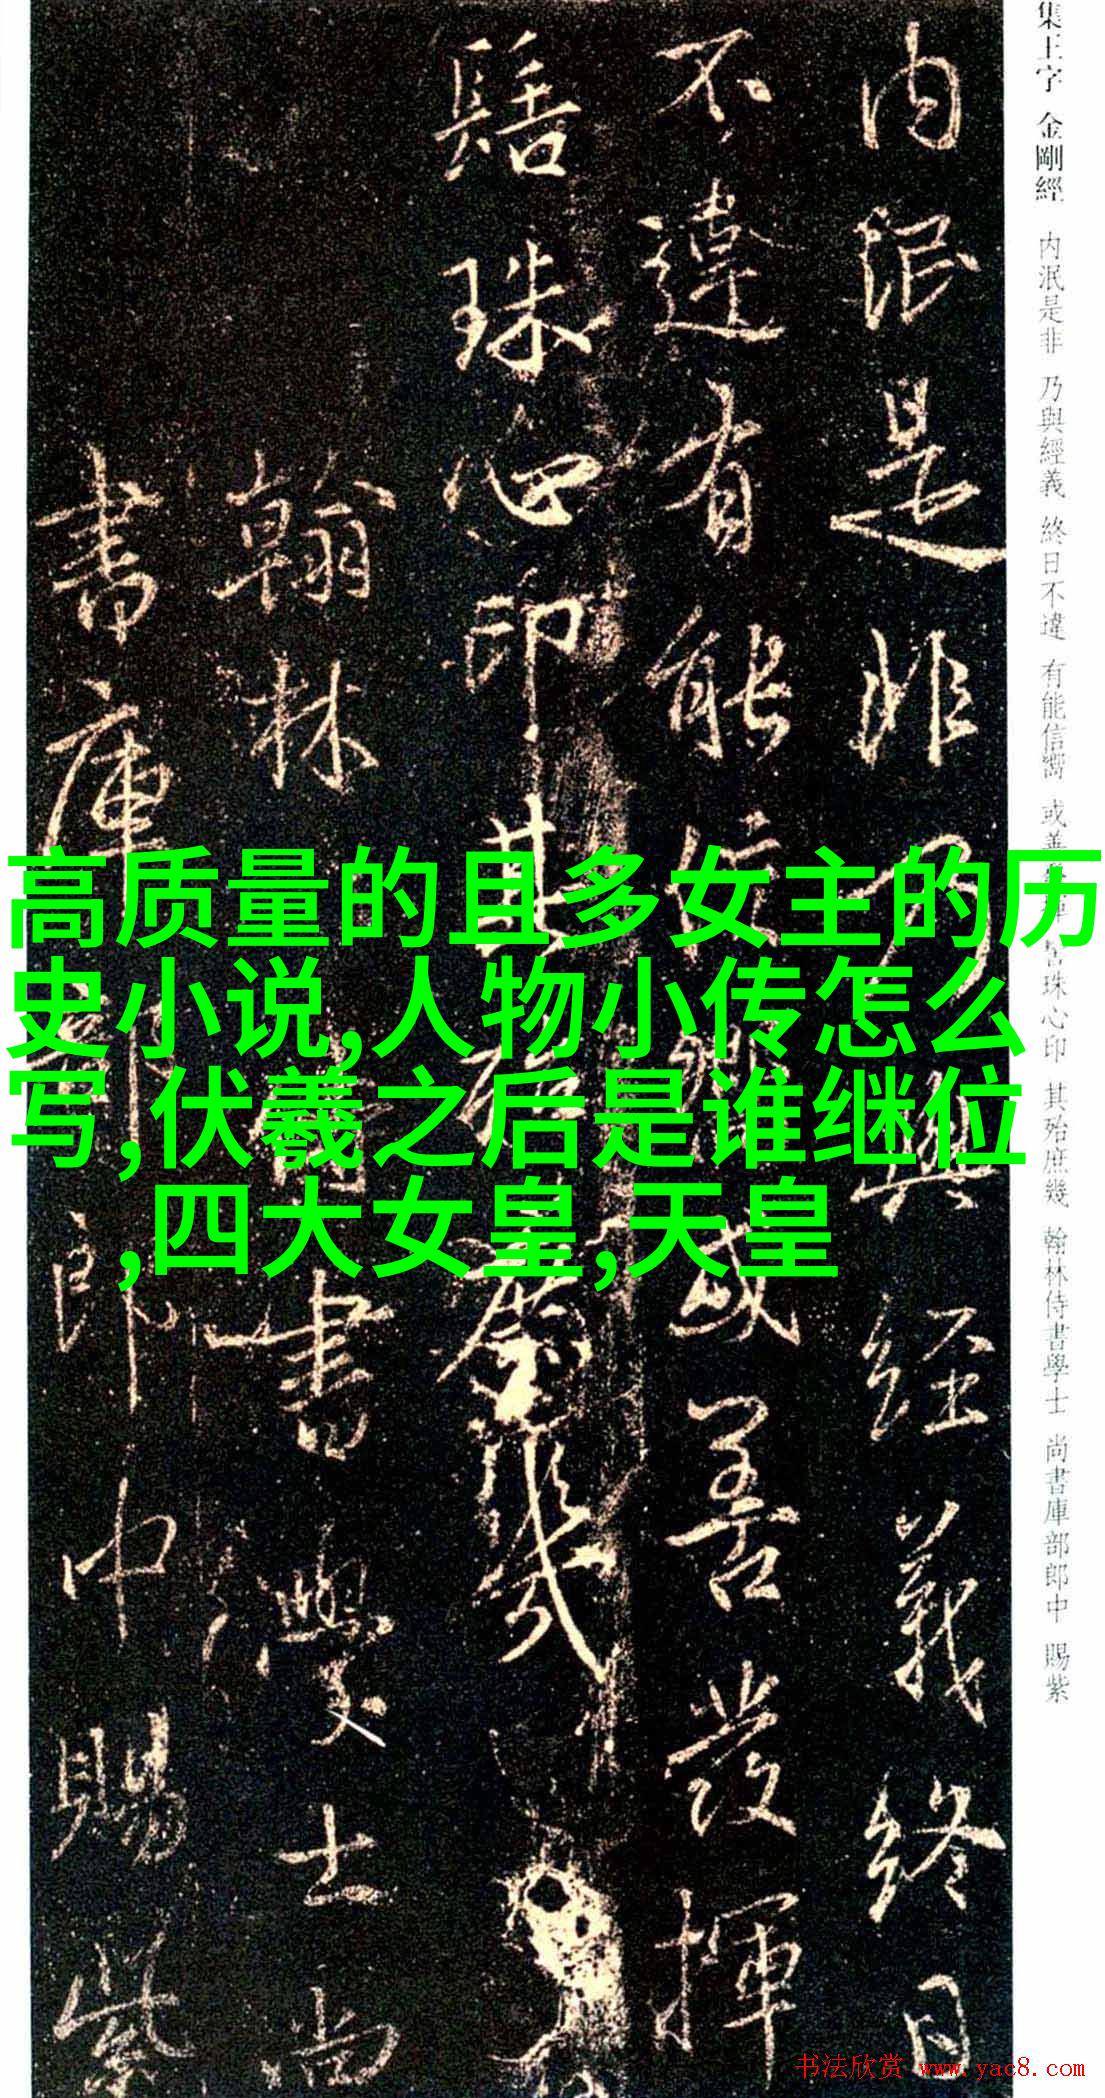 集王字 金剛經 内泯是非 乃與經義 終日不違 有能信嚮 或善
珠心印 其殆庶幾 翰林侍書學士 尚書庫部郎中 賜紫
内泯是非乃與經義終日
不違有能信嚮或善發揮
髻珠心印其殆庶幾
翰林侍書學士尚
書庫部郎中賜紫
高质量的且多女主的历
史小说,人物小传怎么
写,伏羲之后是谁继位
,四大女皇,天皇
书法欣赏 www.yac8.com